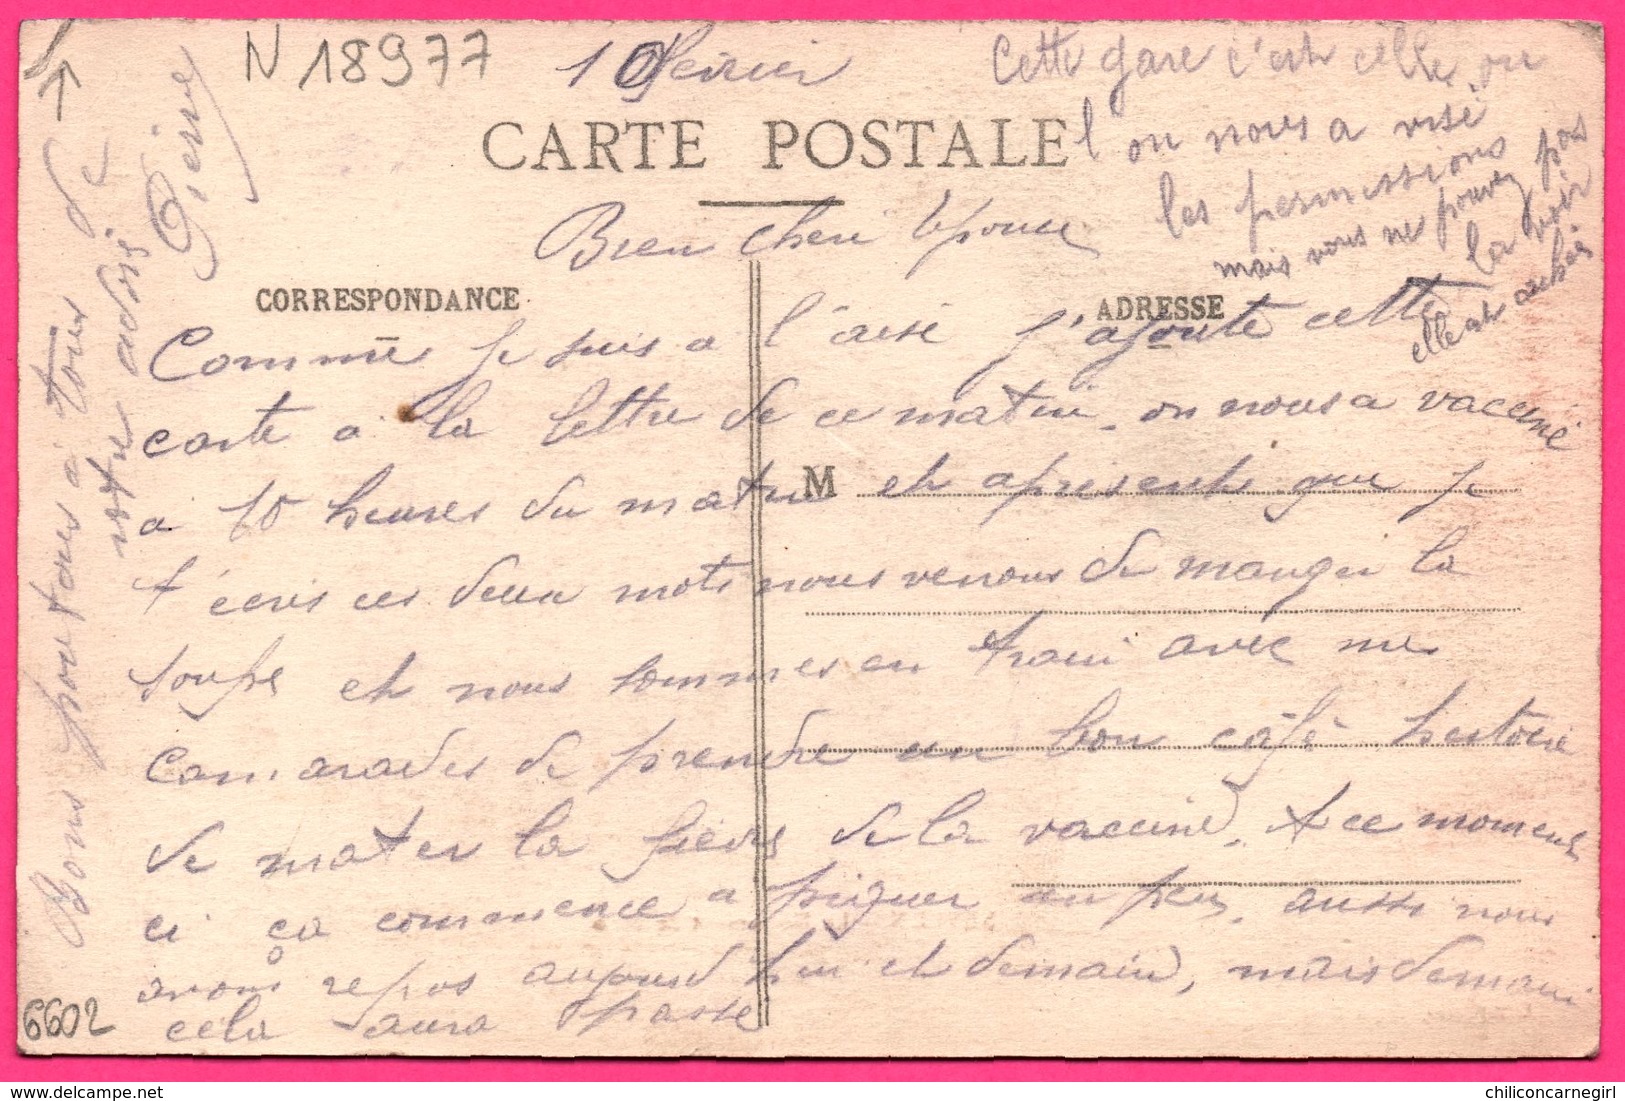 N 18977
10 fevrier
Cette gare c'est celle ou
l'on nous a visé
les permissions
mais vous ne pouvez pas
la voir
elle est cachée
CARTE POSTALE
Bien cheri Epouse
CORRESPONDANCE
ADRESSE
Comme je suis a l'aise j'ajoute cette
carte a la lettre de ce matin. on nous a vacciné
a 10 heures du matin et apresent que je
M
t'écris ces deux mots nous venons de manger la
soupe et nous sommes en train avec mes
camarades de prendre un bon café histoire
de mater la fièvre de la vaccine. A ce moment
ci ça commence a piquer un peu. aussi nous
avons repos aujourd'hui et demain, mais demain
cela saura passé
Bons a tous de
votre
Pierre
6602
delcampe.net
chiliconcarnegirl